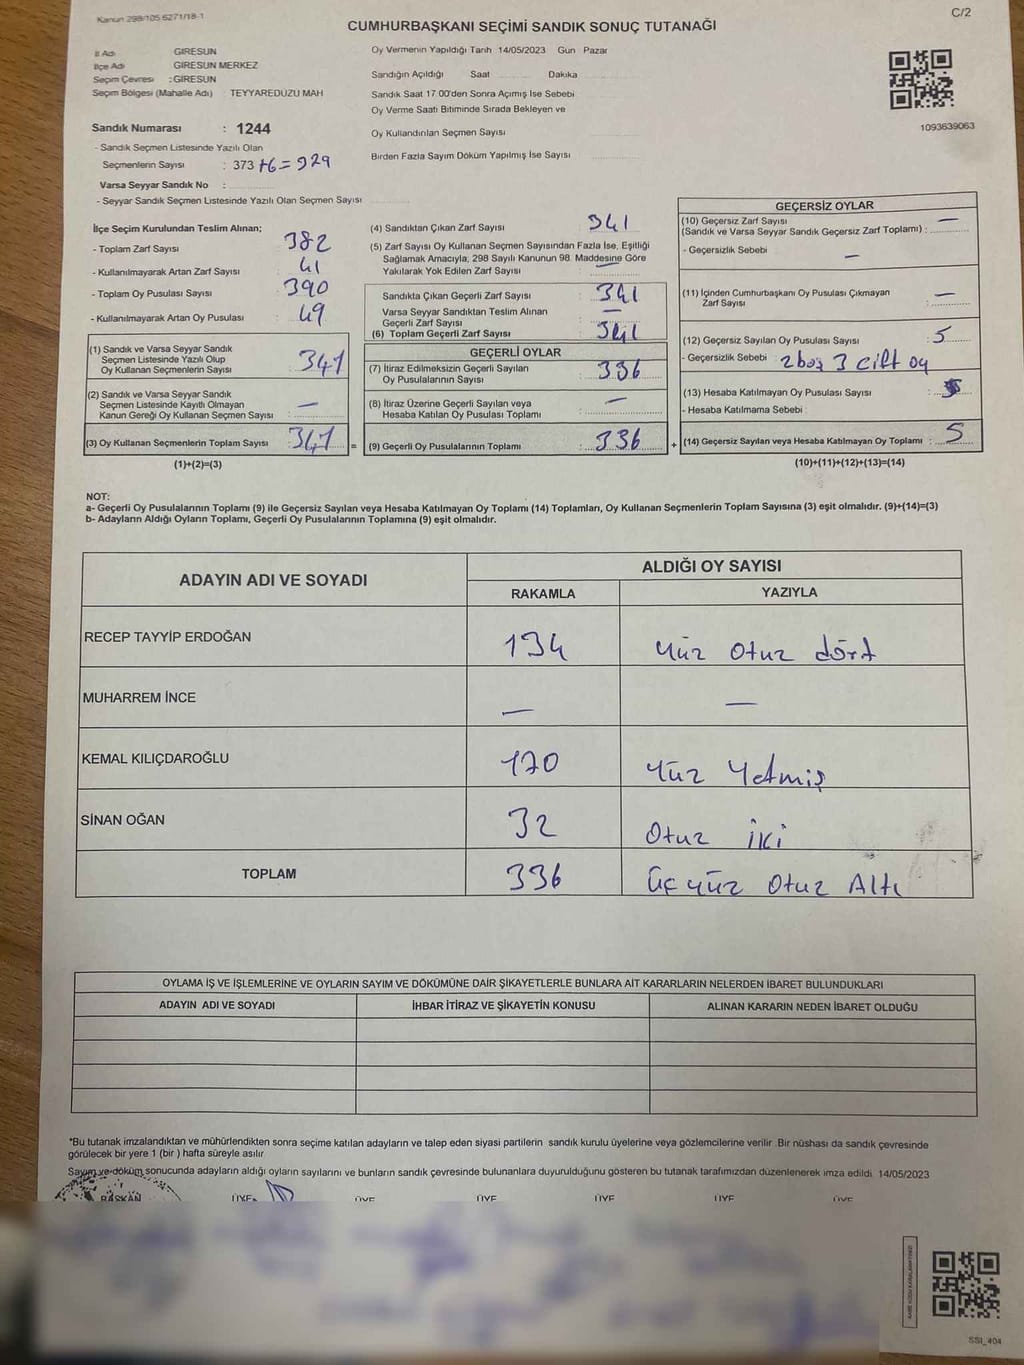 Kanun 298/105 6271/18-1
C/2
CUMHURBAŞKANI SEÇİMİ SANDIK SONUÇ TUTANAĞI
İl Adı GİRESUN
İlçe Adı GİRESUN MERKEZ
Seçim Çevresi : GİRESUN
Seçim Bölgesi (Mahalle Adı) TEYYAREDÜZÜ MAH
Sandık Numarası : 1244
- Sandık Seçmen Listesinde Yazılı Olan
Seçmenlerin Sayısı : 373 +6=929
Varsa Seyyar Sandık No :
- Seyyar Sandık Seçmen Listesinde Yazılı Olan Seçmen Sayısı
Oy Vermenin Yapıldığı Tarih 14/05/2023 Gün Pazar
Sandığın Açıldığı Saat Dakika
Sandık Saat 17 00'den Sonra Açımış İse Sebebi
Oy Verme Saati Bitiminde Sırada Bekleyen ve
Oy Kullandırılan Seçmen Sayısı
Birden Fazla Sayım Döküm Yapılmış İse Sayısı
1093639063
İlçe Seçim Kurulundan Teslim Alınan;
- Toplam Zarf Sayısı 382
- Kullanılmayarak Artan Zarf Sayısı 41
- Toplam Oy Pusulası Sayısı 390
- Kullanılmayarak Artan Oy Pusulası 49
(1) Sandık ve Varsa Seyyar Sandık
Seçmen Listesinde Yazılı Olup
Oy Kullanan Seçmenlerin Sayısı 341
(2) Sandık ve Varsa Seyyar Sandık
Seçmen Listesinde Kayıtlı Olmayan
Kanun Gereği Oy Kullanan Seçmen Sayısı : —
(3) Oy Kullanan Seçmenlerin Toplam Sayısı : 341 =
(1)+(2)=(3)
(4) Sandıktan Çıkan Zarf Sayısı 341
(5) Zarf Sayısı Oy Kullanan Seçmen Sayısından Fazla İse, Eşitliği
Sağlamak Amacıyla, 298 Sayılı Kanunun 98. Maddesine Göre
Yakılarak Yok Edilen Zarf Sayısı —
Sandıkta Çıkan Geçerli Zarf Sayısı 341
Varsa Seyyar Sandıktan Teslim Alınan
Geçerli Zarf Sayısı —
(6) Toplam Geçerli Zarf Sayısı 341
GEÇERLİ OYLAR
(7) İtiraz Edilmeksizin Geçerli Sayılan
Oy Pusulalarının Sayısı 336
(8) İtiraz Üzerine Geçerli Sayılan veya
Hesaba Katılan Oy Pusulası Toplamı —
(9) Geçerli Oy Pusulalarının Toplamı : 336 +
GEÇERSİZ OYLAR
(10) Geçersiz Zarf Sayısı —
(Sandık ve Varsa Seyyar Sandık Geçersiz Zarf Toplamı) :
- Geçersizlik Sebebi —
(11) İçinden Cumhurbaşkanı Oy Pusulası Çıkmayan
Zarf Sayısı : —
(12) Geçersiz Sayılan Oy Pusulası Sayısı 5
- Geçersizlik Sebebi 2boş 3 çift oy
(13) Hesaba Katılmayan Oy Sayısı
- Hesaba Katılmama Sebebi
(14) Geçersiz Sayılan veya Hesaba Katılmayan Oy Toplamı : 5
(10)+(11)+(12)+(13)=(14)
NOT:
a- Geçerli Oy Pusulalarının Toplamı (9) ile Geçersiz Sayılan veya Hesaba Katılmayan Oy Toplamı (14) Toplamları, Oy Kullanan Seçmenlerin Toplam Sayısına (3) eşit olmalıdır. (9)+(14)=(3)
b- Adayların Aldığı Oyların Toplamı, Geçerli Oy Pusulalarının Toplamına (9) eşit olmalıdır.
ADAYIN ADI VE SOYADI ALDIĞI OY SAYISI
RAKAMLA YAZIYLA
RECEP TAYYİP ERDOĞAN 134 Yüz Otuz dört
MUHARREM İNCE — —
KEMAL KILIÇDAROĞLU 170 Yüz Yetmiş
SİNAN OĞAN 32 Otuz İKİ
TOPLAM 336 Üçyüz Otuz Altı
OYLAMA İŞ VE İŞLEMLERİNE VE OYLARIN SAYIM VE DÖKÜMÜNE DAİR ŞİKAYETLERLE BUNLARA AİT KARARLARIN NELERDEN İBARET BULUNDUKLARI
ADAYIN ADI VE SOYADI İHBAR İTİRAZ VE ŞİKAYETİN KONUSU ALINAN KARARIN NEDEN İBARET OLDUĞU
*Bu tutanak imzalandıktan ve mühürlendikten sonra seçime katılan adayların ve talep eden siyasi partilerin sandık kurulu üyelerine veya gözlemcilerine verilir .Bir nüshası da sandık çevresinde
görülecek bir yere 1 (bir ) hafta süreyle asılır
Sayım ve döküm sonucunda adayların aldığı oyların sayılarını ve bunların sandık çevresinde bulunanlara duyurulduğunu gösteren bu tutanak tarafımızdan düzenlenerek imza edildi 14/05/2023
BAŞKAN ÜYE ÜYE ÜYE ÜYE ÜYE ÜYE
SSI_404